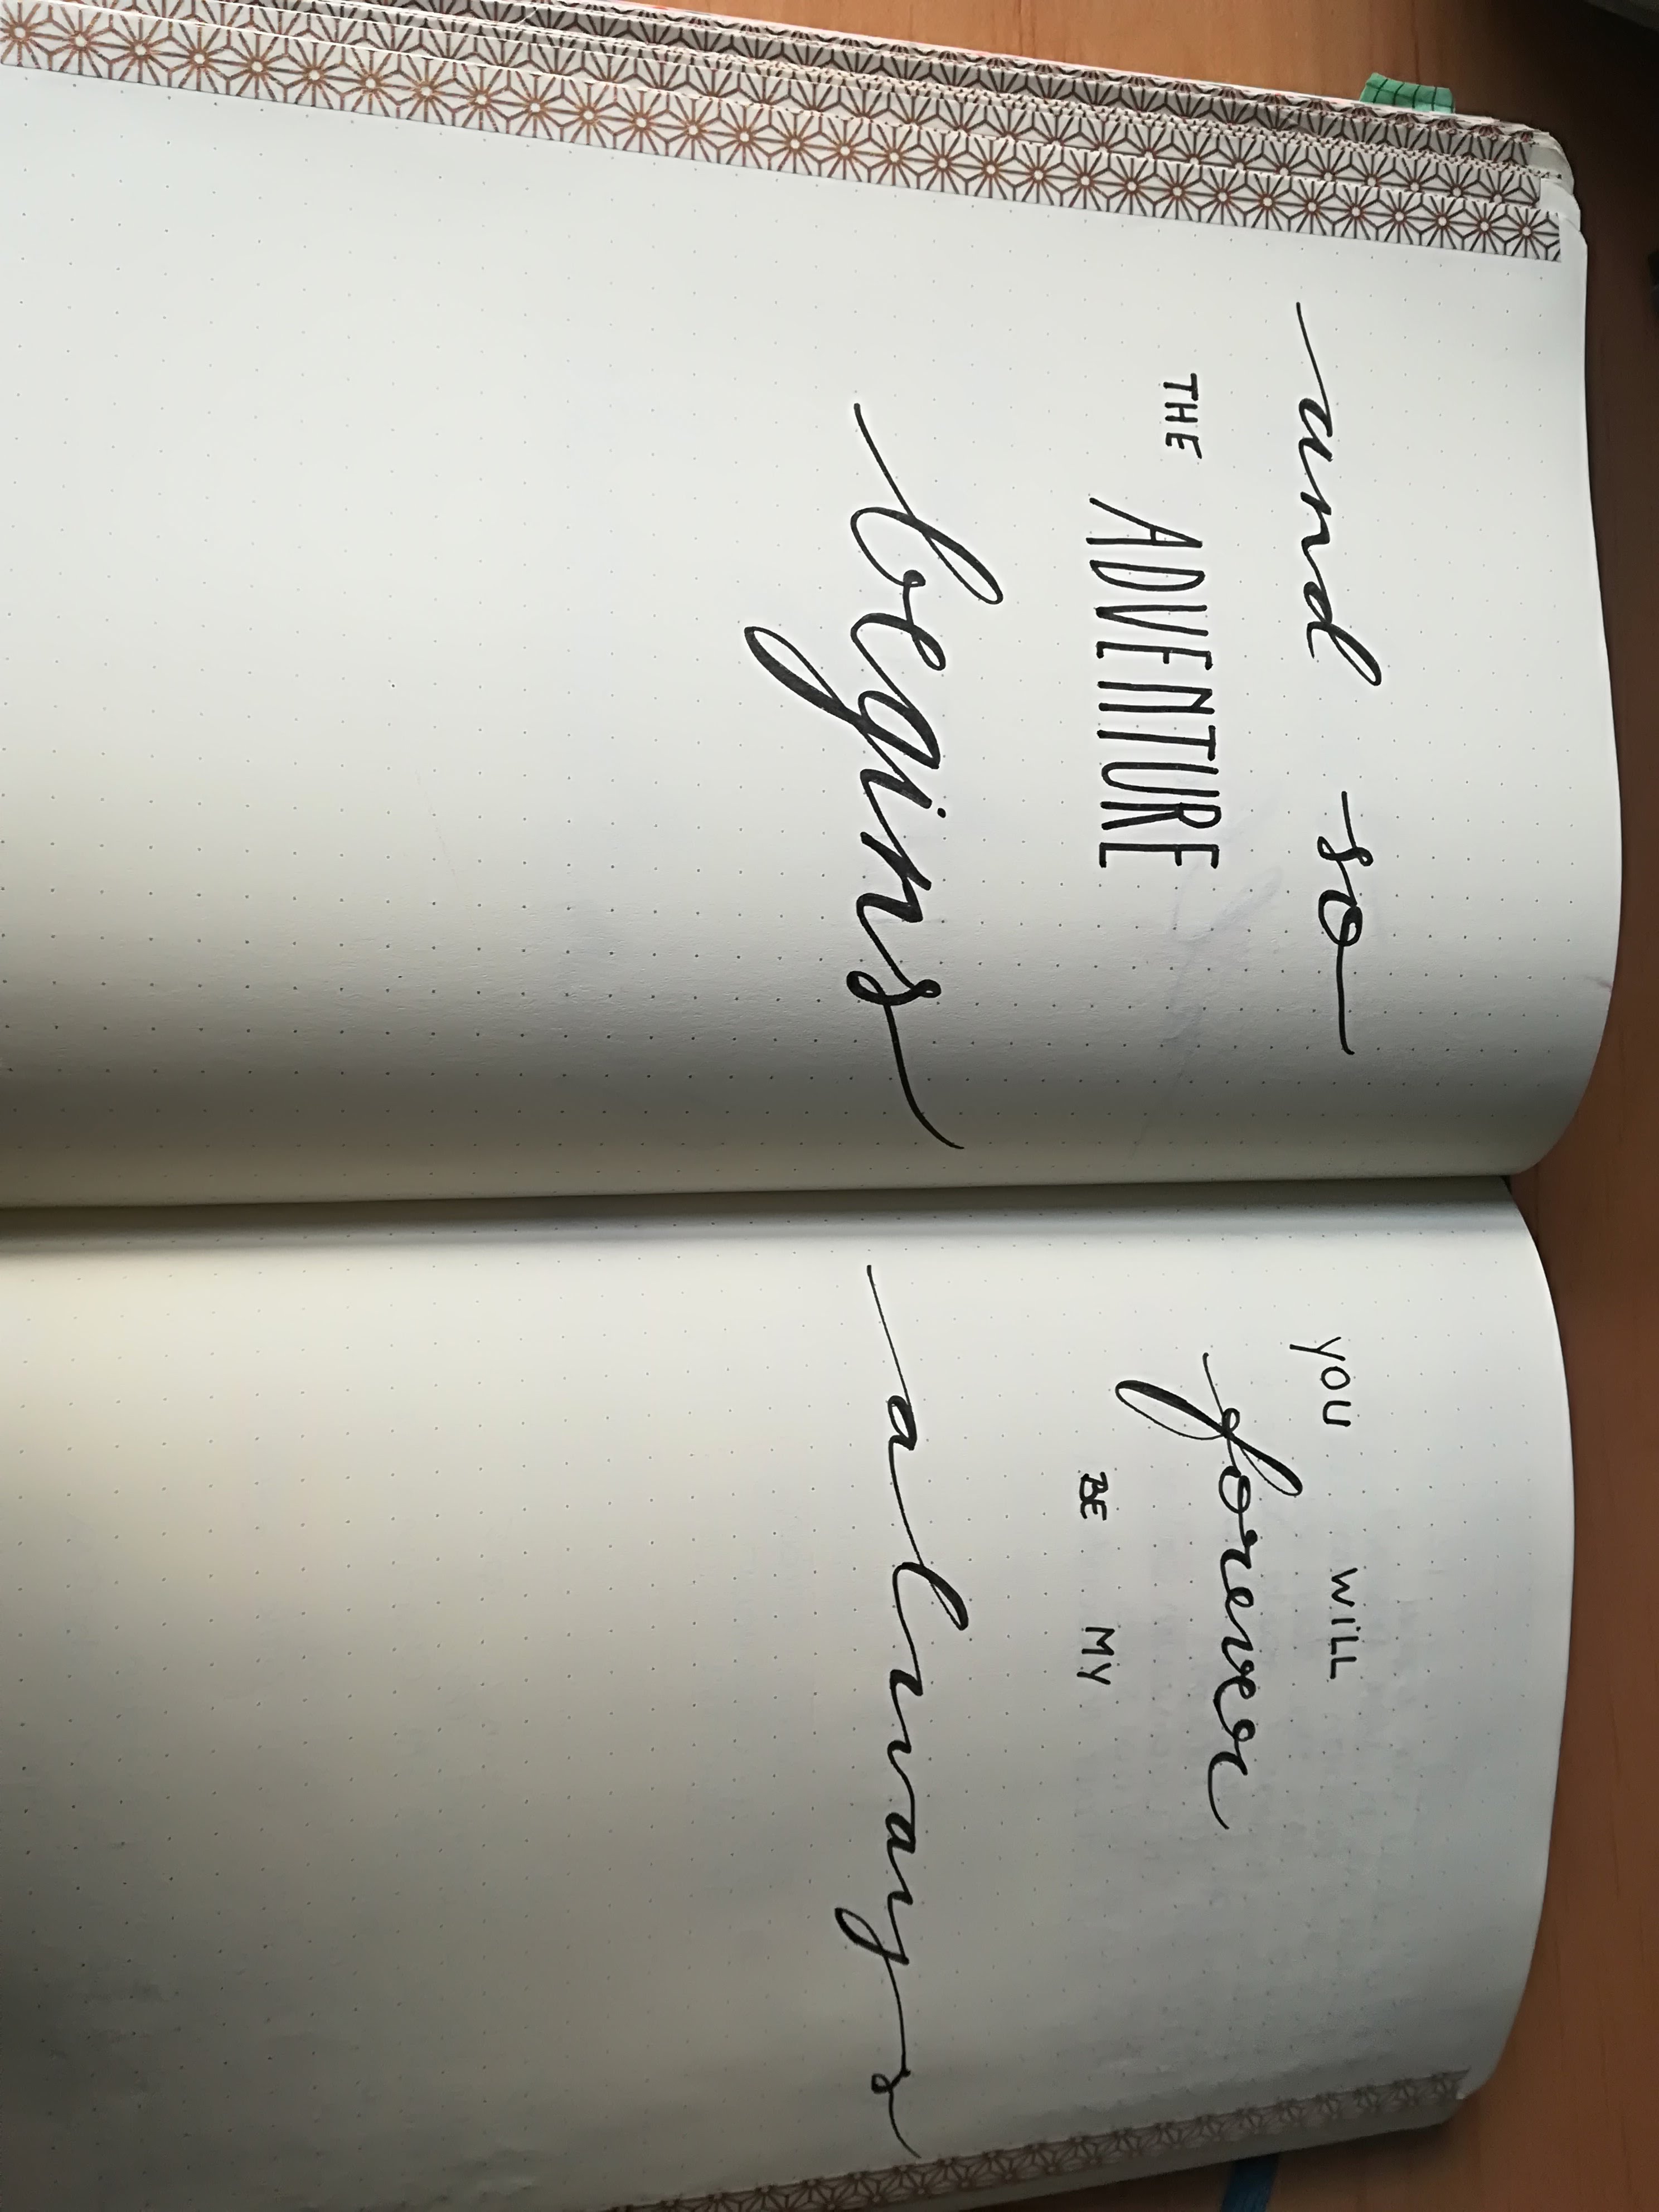 and so
THE ADVENTURE
begins
YOU WiLL
forever
BE MY
always